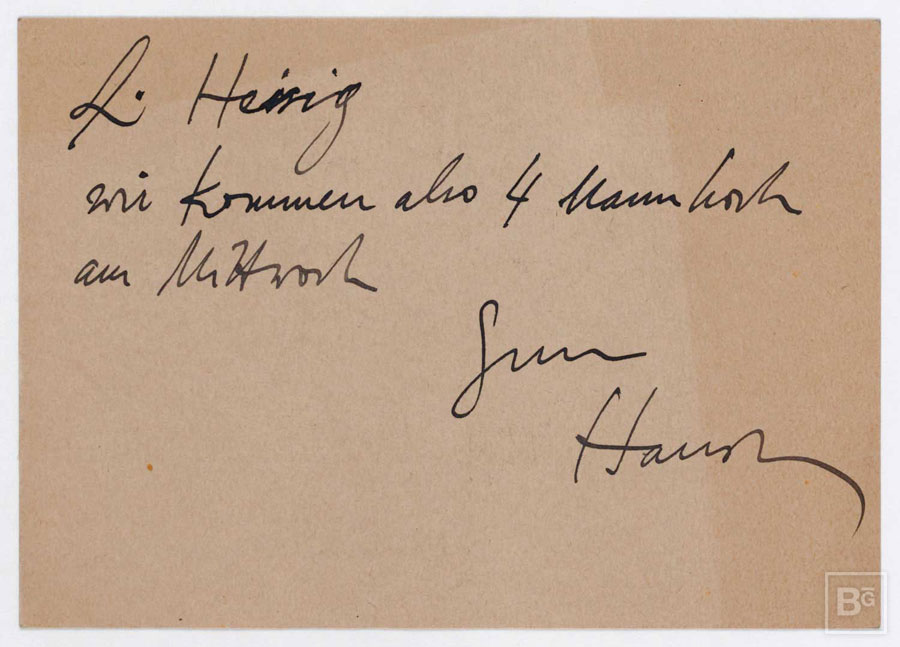 L. Heisig
wir kommen also 4 Mann hoch
am Mittwoch
Hansch
BG